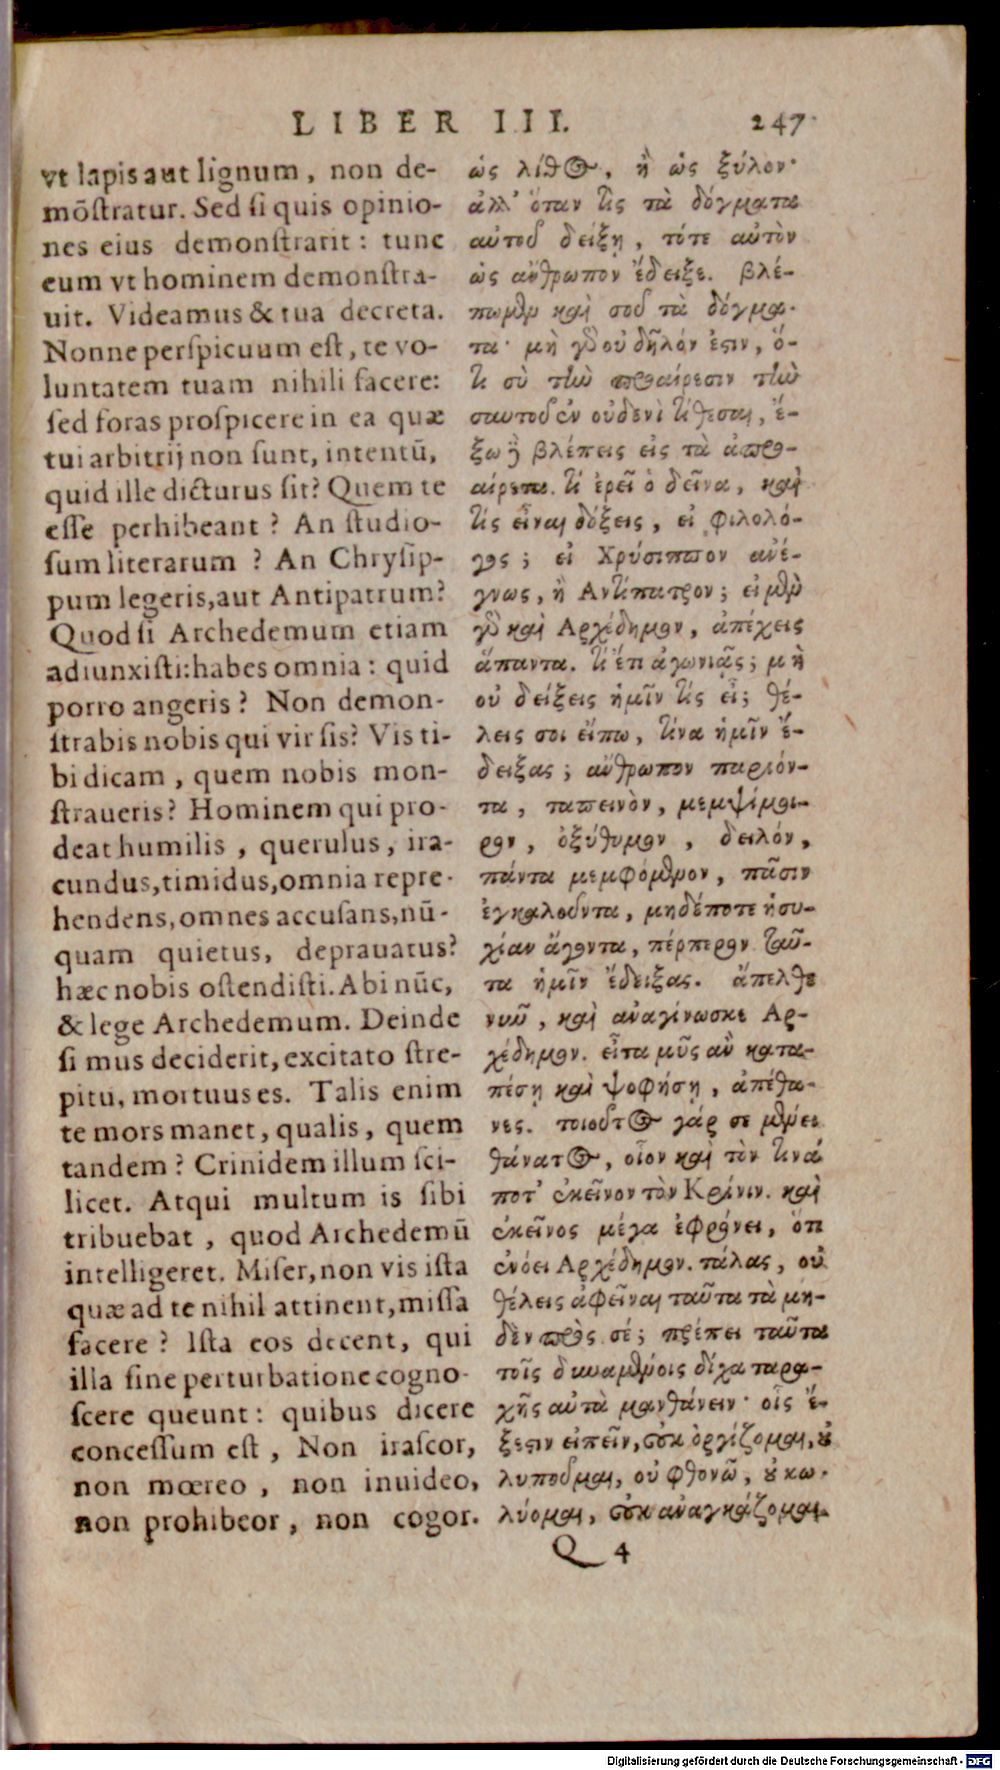 LIBER III. 247
vt lapis aut lignum, non de-
mōstratur. Sed si quis opinio-
nes eius demonstrarit: tunc
eum vt hominem demonstra-
uit. Videamus & tua decreta.
Nonne perspicuum est, te vo-
luntatem tuam nihili facere:
sed foras prospicere in ea quæ
tui arbitrij non sunt, intentū,
quid ille dicturus sit? Quem te
esse perhibeant? An studio-
sum literarum? An Chrysip-
pum legeris, aut Antipatrum?
Quod si Archedemum etiam
adiunxisti: habes omnia: quid
porro angeris? Non demon-
strabis nobis qui vir sis? Vis ti-
bi dicam, quem nobis mon-
straueris? Hominem qui pro-
deat humilis, querulus, ira-
cundus, timidus, omnia repre-
hendens, omnes accusans, nū-
quam quietus, deprauatus?
hæc nobis ostendisti. Abi nūc,
& lege Archedemum. Deinde
si mus deciderit, excitato stre-
pitu, mortuus es. Talis enim
te mors manet, qualis, quem
tandem? Crinidem illum sci-
licet. Atqui multum is sibi
tribuebat, quod Archedemū
intelligeret. Miser, non vis ista
quæ ad te nihil attinent, missa
facere? Ista eos decent, qui
illa sine perturbatione cogno-
scere queunt: quibus dicere
concessum est, Non irascor,
non mœreo, non inuideo,
non prohibeor, non cogor.
ὡς λίθος, ἢ ὡς ξύλον·
ἀλλ' ὅταν τις τὰ δόγματα
αὐτοῦ δείξῃ, τότε αὐτὸν
ὡς ἄνθρωπον ἔδειξε. βλέ-
πωμεν καὶ σοῦ τὰ δόγμα-
τα· μὴ γὰρ οὐ δῆλόν ἐστιν, ὅ-
τι σὺ τὴν προαίρεσιν τὴν
σαυτοῦ ἐν οὐδενὶ τίθεσαι, ἔ-
ξω δὲ βλέπεις εἰς τὰ ἀπρο-
αίρετα. τί ἐρεῖ ὁ δεῖνα, καὶ
τίς εἶναι δόξεις, εἰ φιλολό-
γος; εἰ Χρύσιππον ἀνέ-
γνως, ἢ Ἀντίπατρον; εἰ μὲν
γὰρ καὶ Ἀρχέδημον, ἀπέχεις
ἅπαντα. τί ἔτι ἀγωνιᾷς; μὴ
οὐ δείξεις ἡμῖν τίς εἶ; θέ-
λεις σοι εἴπω, τίνα ἡμῖν ἔ-
δειξας; ἄνθρωπον παριόν-
τα, ταπεινὸν, μεμψίμοι-
ρον, ὀξύθυμον, δειλόν,
πάντα μεμφόμενον, πᾶσιν
ἐγκαλοῦντα, μηδέποτε ἡσυ-
χίαν ἄγοντα, πέρπερον. ταῦ-
τα ἡμῖν ἔδειξας. ἄπελθε
νῦν, καὶ ἀναγίνωσκε Ἀρ-
χέδημον. εἶτα μῦς ἂν κατα-
πέσῃ καὶ ψοφήσῃ, ἀπέθα-
νες. τοιοῦτος γάρ σε μένει
θάνατος, οἷον καὶ τὸν τινά
ποτ' ἐκεῖνον τὸν Κρίνιν. καὶ
ἐκεῖνος μέγα ἐφρόνει, ὅτι
ἐνόει Ἀρχέδημον. τάλας, οὐ
θέλεις ἀφεῖναι ταῦτα τὰ μη-
δὲν πρὸς σέ; πρέπει ταῦτα
τοῖς δυναμένοις δίχα ταρα-
χῆς αὐτὰ μανθάνειν· οἷς ἔ-
ξεστιν εἰπεῖν, οὐκ ὀργίζομαι, οὐ
λυποῦμαι, οὐ φθονῶ, οὐ κω-
λύομαι, οὐκ ἀναγκάζομαι.
Q 4
Digitalisierung gefördert durch die Deutsche Forschungsgemeinschaft - DFG